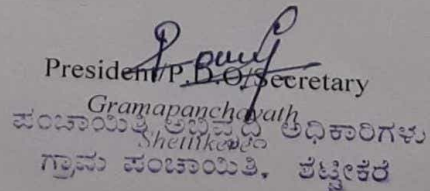 President/P.D.O/Secretary
Gramapanchayath
ಪಂಚಾಯಿತಿ ಅಭಿವೃದ್ಧಿ ಅಧಿಕಾರಿಗಳು
ಗ್ರಾಮ ಪಂಚಾಯಿತಿ, ಶೆಟ್ಟೀಕೆರೆ